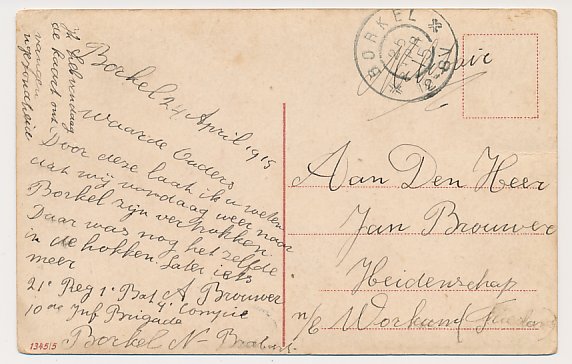 Borkel 24 April 1915
Waarde Ouders
Door deze laat ik u weten
dat wij vandaag weer naar
Borkel zijn vertrokken.
Daar was nog het zelfde
in de hokken. Later iets
meer
A Brouwer
21e Reg 1e Bat 4e Compie
10de Inf Brigade
Borkel N- Brabant.
Ik heb vandaag
de kaart ont
vangen
BORKEL
25
APR
15
Aan Den Heer
Jan Brouwer
Heidenschap
n/b Workum
13455